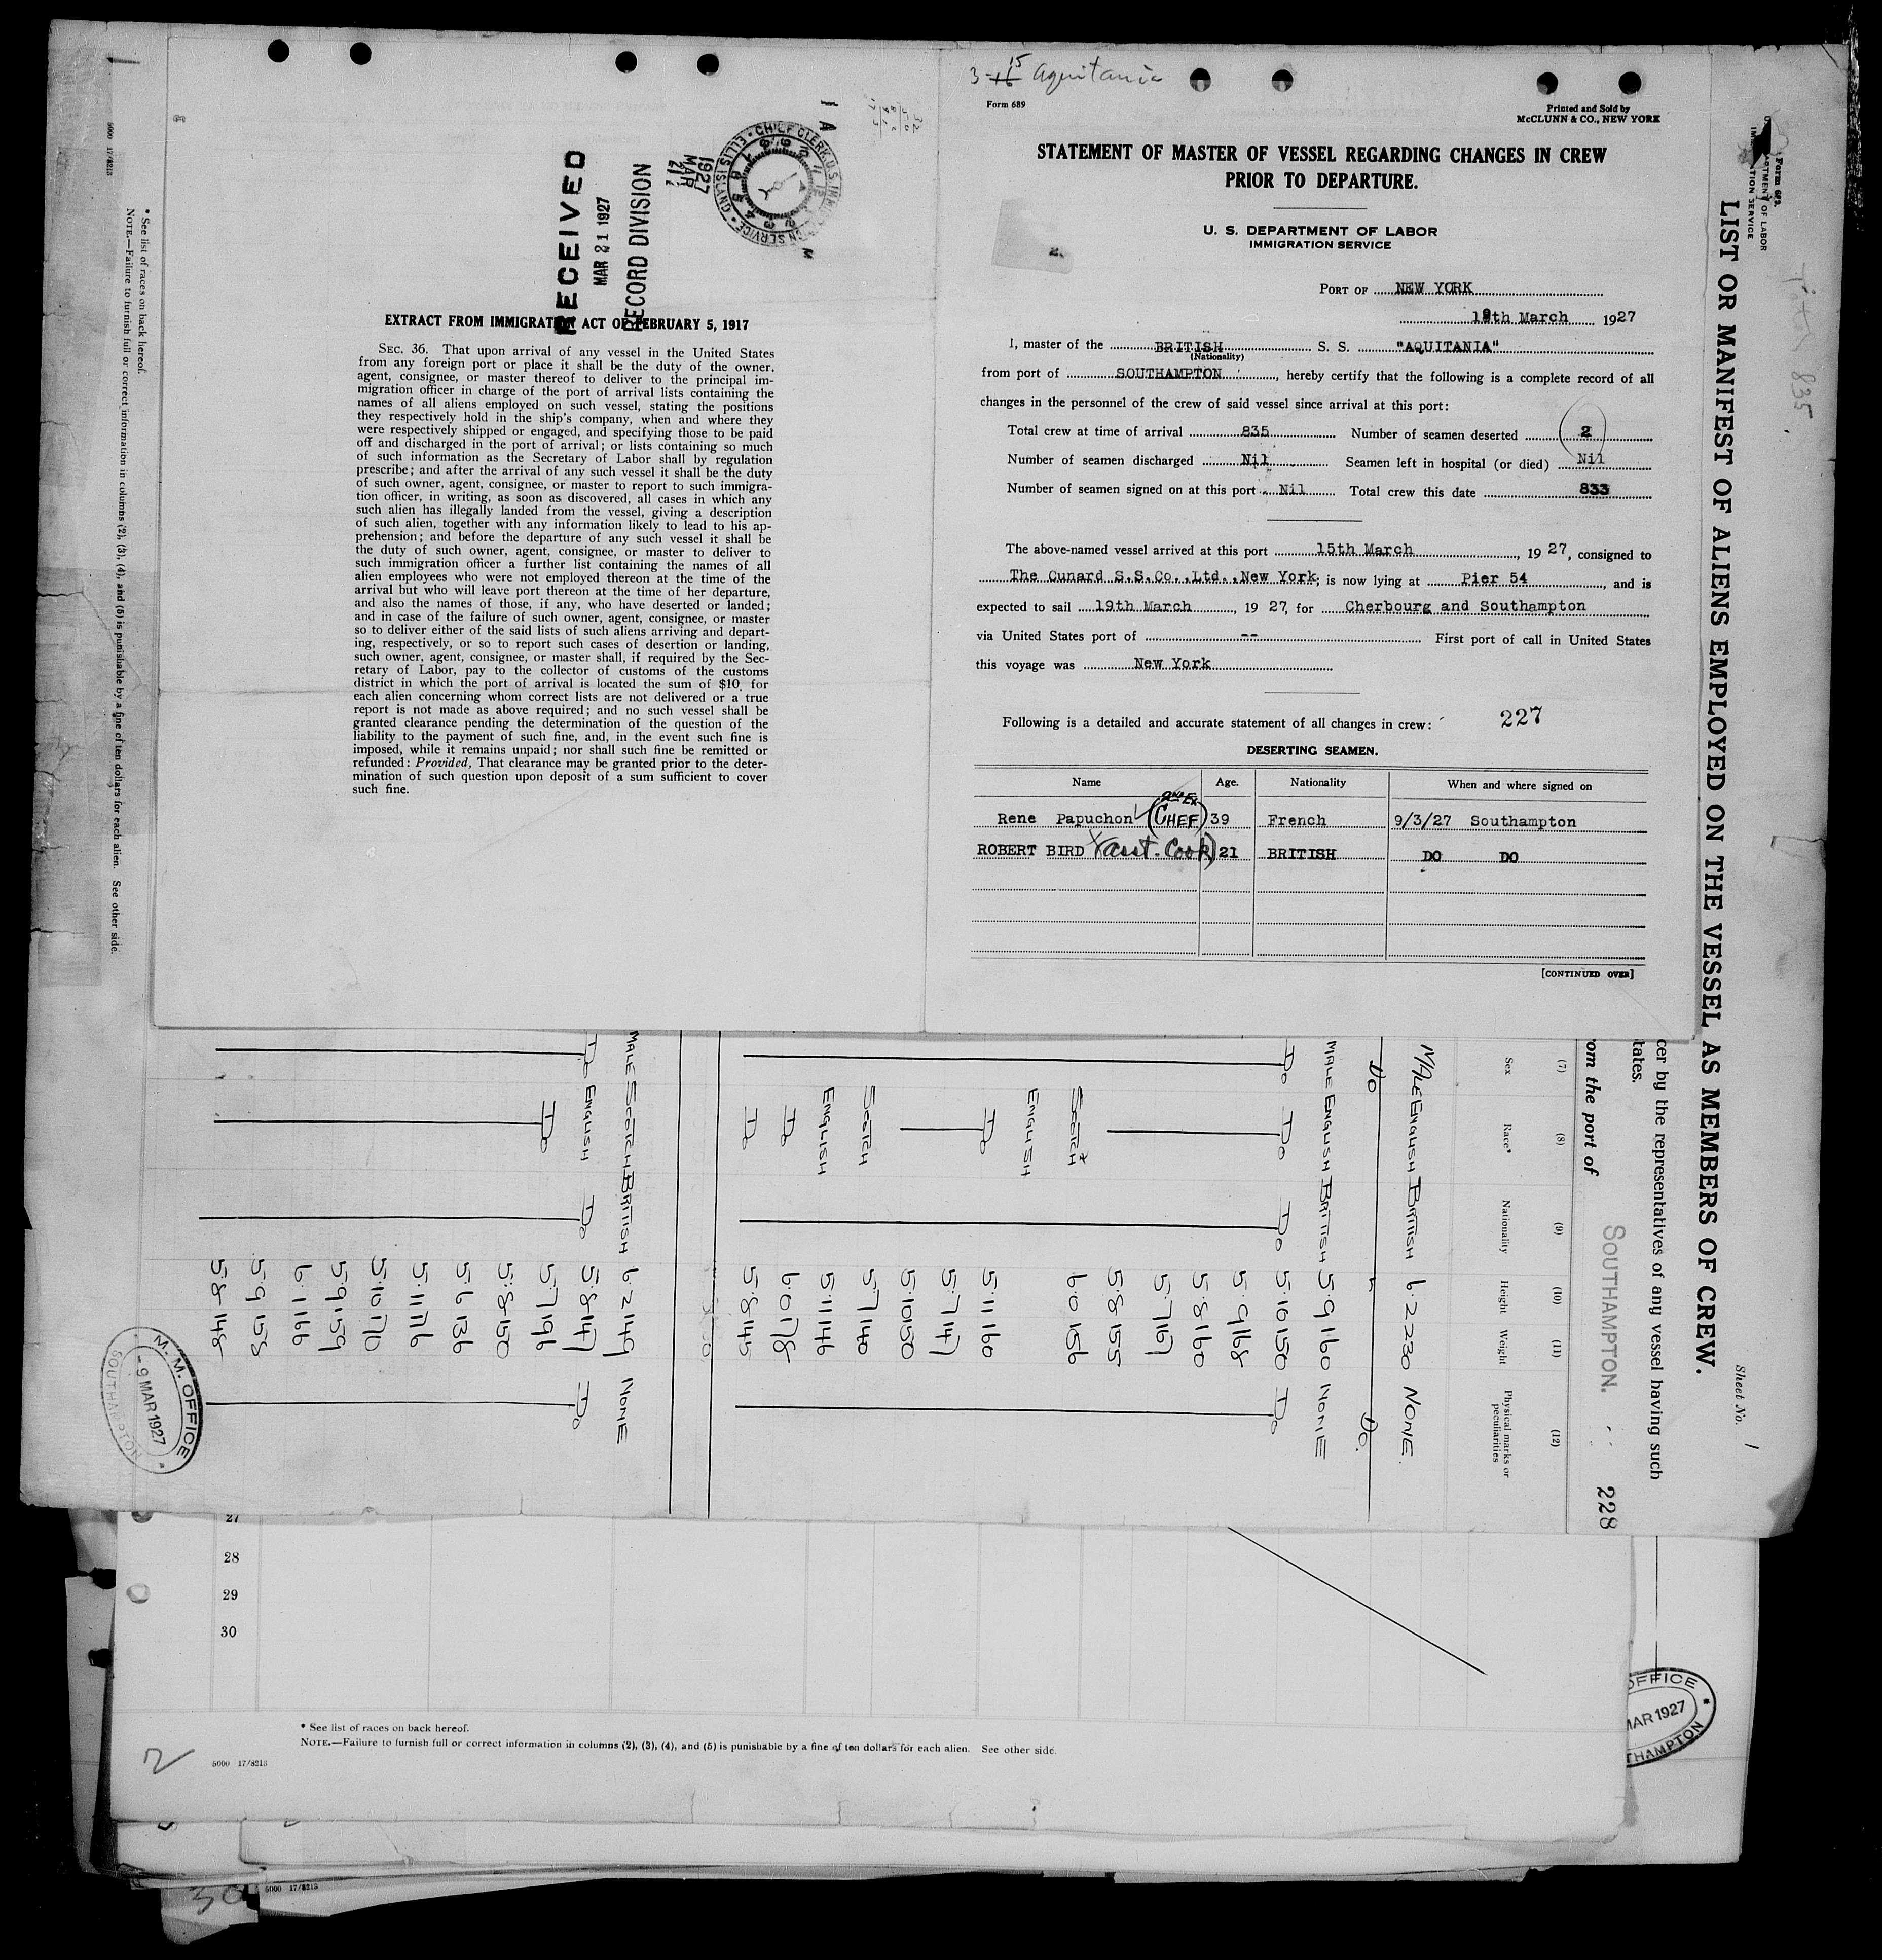 3-16 15 Aquitania
Form 689
Printed and Sold by
McCLUNN & CO., NEW YORK
STATEMENT OF MASTER OF VESSEL REGARDING CHANGES IN CREW
PRIOR TO DEPARTURE.
U. S. DEPARTMENT OF LABOR
IMMIGRATION SERVICE
PORT OF NEW YORK
19th March 1927
I, master of the BRITISH S. S. "AQUITANIA"
(Nationality)
from port of SOUTHAMPTON, hereby certify that the following is a complete record of all
changes in the personnel of the crew of said vessel since arrival at this port:
Total crew at time of arrival 835 Number of seamen deserted 2
Number of seamen discharged Nil Seamen left in hospital (or died) Nil
Number of seamen signed on at this port Nil Total crew this date 833
The above-named vessel arrived at this port 15th March, 1927, consigned to
The Cunard S.S.Co.,Ltd.,New York; is now lying at Pier 54, and is
expected to sail 19th March, 1927, for Cherbourg and Southampton
via United States port of -- First port of call in United States
this voyage was New York
Following is a detailed and accurate statement of all changes in crew: 227
DESERTING SEAMEN.
Name Age. Nationality When and where signed on
Rene Papuchon (CHEF) 39 French 9/3/27 Southampton
ROBERT BIRD (asst. Cook) 21 BRITISH DO DO
[CONTINUED OVER]
RECEIVED
MAR 21 1927
RECORD DIVISION
1927
MAR
21
CHIEF CLERK, U.S. IMMIGRATION SERVICE · ELLIS ISLAND
EXTRACT FROM IMMIGRATION ACT OF FEBRUARY 5, 1917
SEC. 36. That upon arrival of any vessel in the United States
from any foreign port or place it shall be the duty of the owner,
agent, consignee, or master thereof to deliver to the principal im-
migration officer in charge of the port of arrival lists containing the
names of all aliens employed on such vessel, stating the positions
they respectively hold in the ship's company, when and where they
were respectively shipped or engaged, and specifying those to be paid
off and discharged in the port of arrival; or lists containing so much
of such information as the Secretary of Labor shall by regulation
prescribe; and after the arrival of any such vessel it shall be the duty
of such owner, agent, consignee, or master to report to such immigra-
tion officer, in writing, as soon as discovered, all cases in which any
such alien has illegally landed from the vessel, giving a description
of such alien, together with any information likely to lead to his ap-
prehension; and before the departure of any such vessel it shall be
the duty of such owner, agent, consignee, or master to deliver to
such immigration officer a further list containing the names of all
alien employees who were not employed thereon at the time of the
arrival but who will leave port thereon at the time of her departure,
and also the names of those, if any, who have deserted or landed;
and in case of the failure of such owner, agent, consignee, or master
so to deliver either of the said lists of such aliens arriving and depart-
ing, respectively, or so to report such cases of desertion or landing,
such owner, agent, consignee, or master shall, if required by the Sec-
retary of Labor, pay to the collector of customs of the customs
district in which the port of arrival is located the sum of $10 for
each alien concerning whom correct lists are not delivered or a true
report is not made as above required; and no such vessel shall be
granted clearance pending the determination of the question of the
liability to the payment of such fine, and, in the event such fine is
imposed, while it remains unpaid; nor shall such fine be remitted or
refunded: Provided, That clearance may be granted prior to the deter-
mination of such question upon deposit of a sum sufficient to cover
such fine.
Form 689
LIST OR MANIFEST OF ALIENS EMPLOYED ON THE VESSEL AS MEMBERS OF CREW.
Sheet No. 1
835
cer by the representatives of any vessel having such
tates.
om the port of SOUTHAMPTON. 228
(7) (8) (9) (10) (11) (12)
Sex Race* Nationality Height Weight Physical marks or peculiarities
MALE ENGLISH BRITISH 6·2 230 NONE.
Do Do.
MALE ENGLISH BRITISH 5·9 160 NONE
Do Do Do 5·10 150 Do
5·9 168
5·8 160
5·7 167
5·8 155
SCOTCH 6·0 156
ENGLISH
Do 5·11 160
5·7 147
5·10 150
SCOTCH 5·7 140
ENGLISH 5·11 146
Do 6·0 178
Do 5·8 145
MALE SCOTCH BRITISH 6·2 149 NONE
Do ENGLISH Do 5·8 147 Do
Do 5·7 196
5·8 150
5·6 136
5·11 176
5·10 170
5·9 159
6·1 166
5·9 158
5·8 148
* See list of races on back hereof.
NOTE.—Failure to furnish full or correct information in columns (2), (3), (4), and (5) is punishable by a fine of ten dollars for each alien. See other side.
5000 17/8213
M. M. OFFICE
-9 MAR 1927
SOUTHAMPTON
27
28
29
30
OFFICE
MAR 1927
THAMPTON
* See list of races on back hereof.
NOTE.—Failure to furnish full or correct information in columns (2), (3), (4), and (5) is punishable by a fine of ten dollars for each alien. See other side.
2
5000 17/8213
30
5000 17/8213